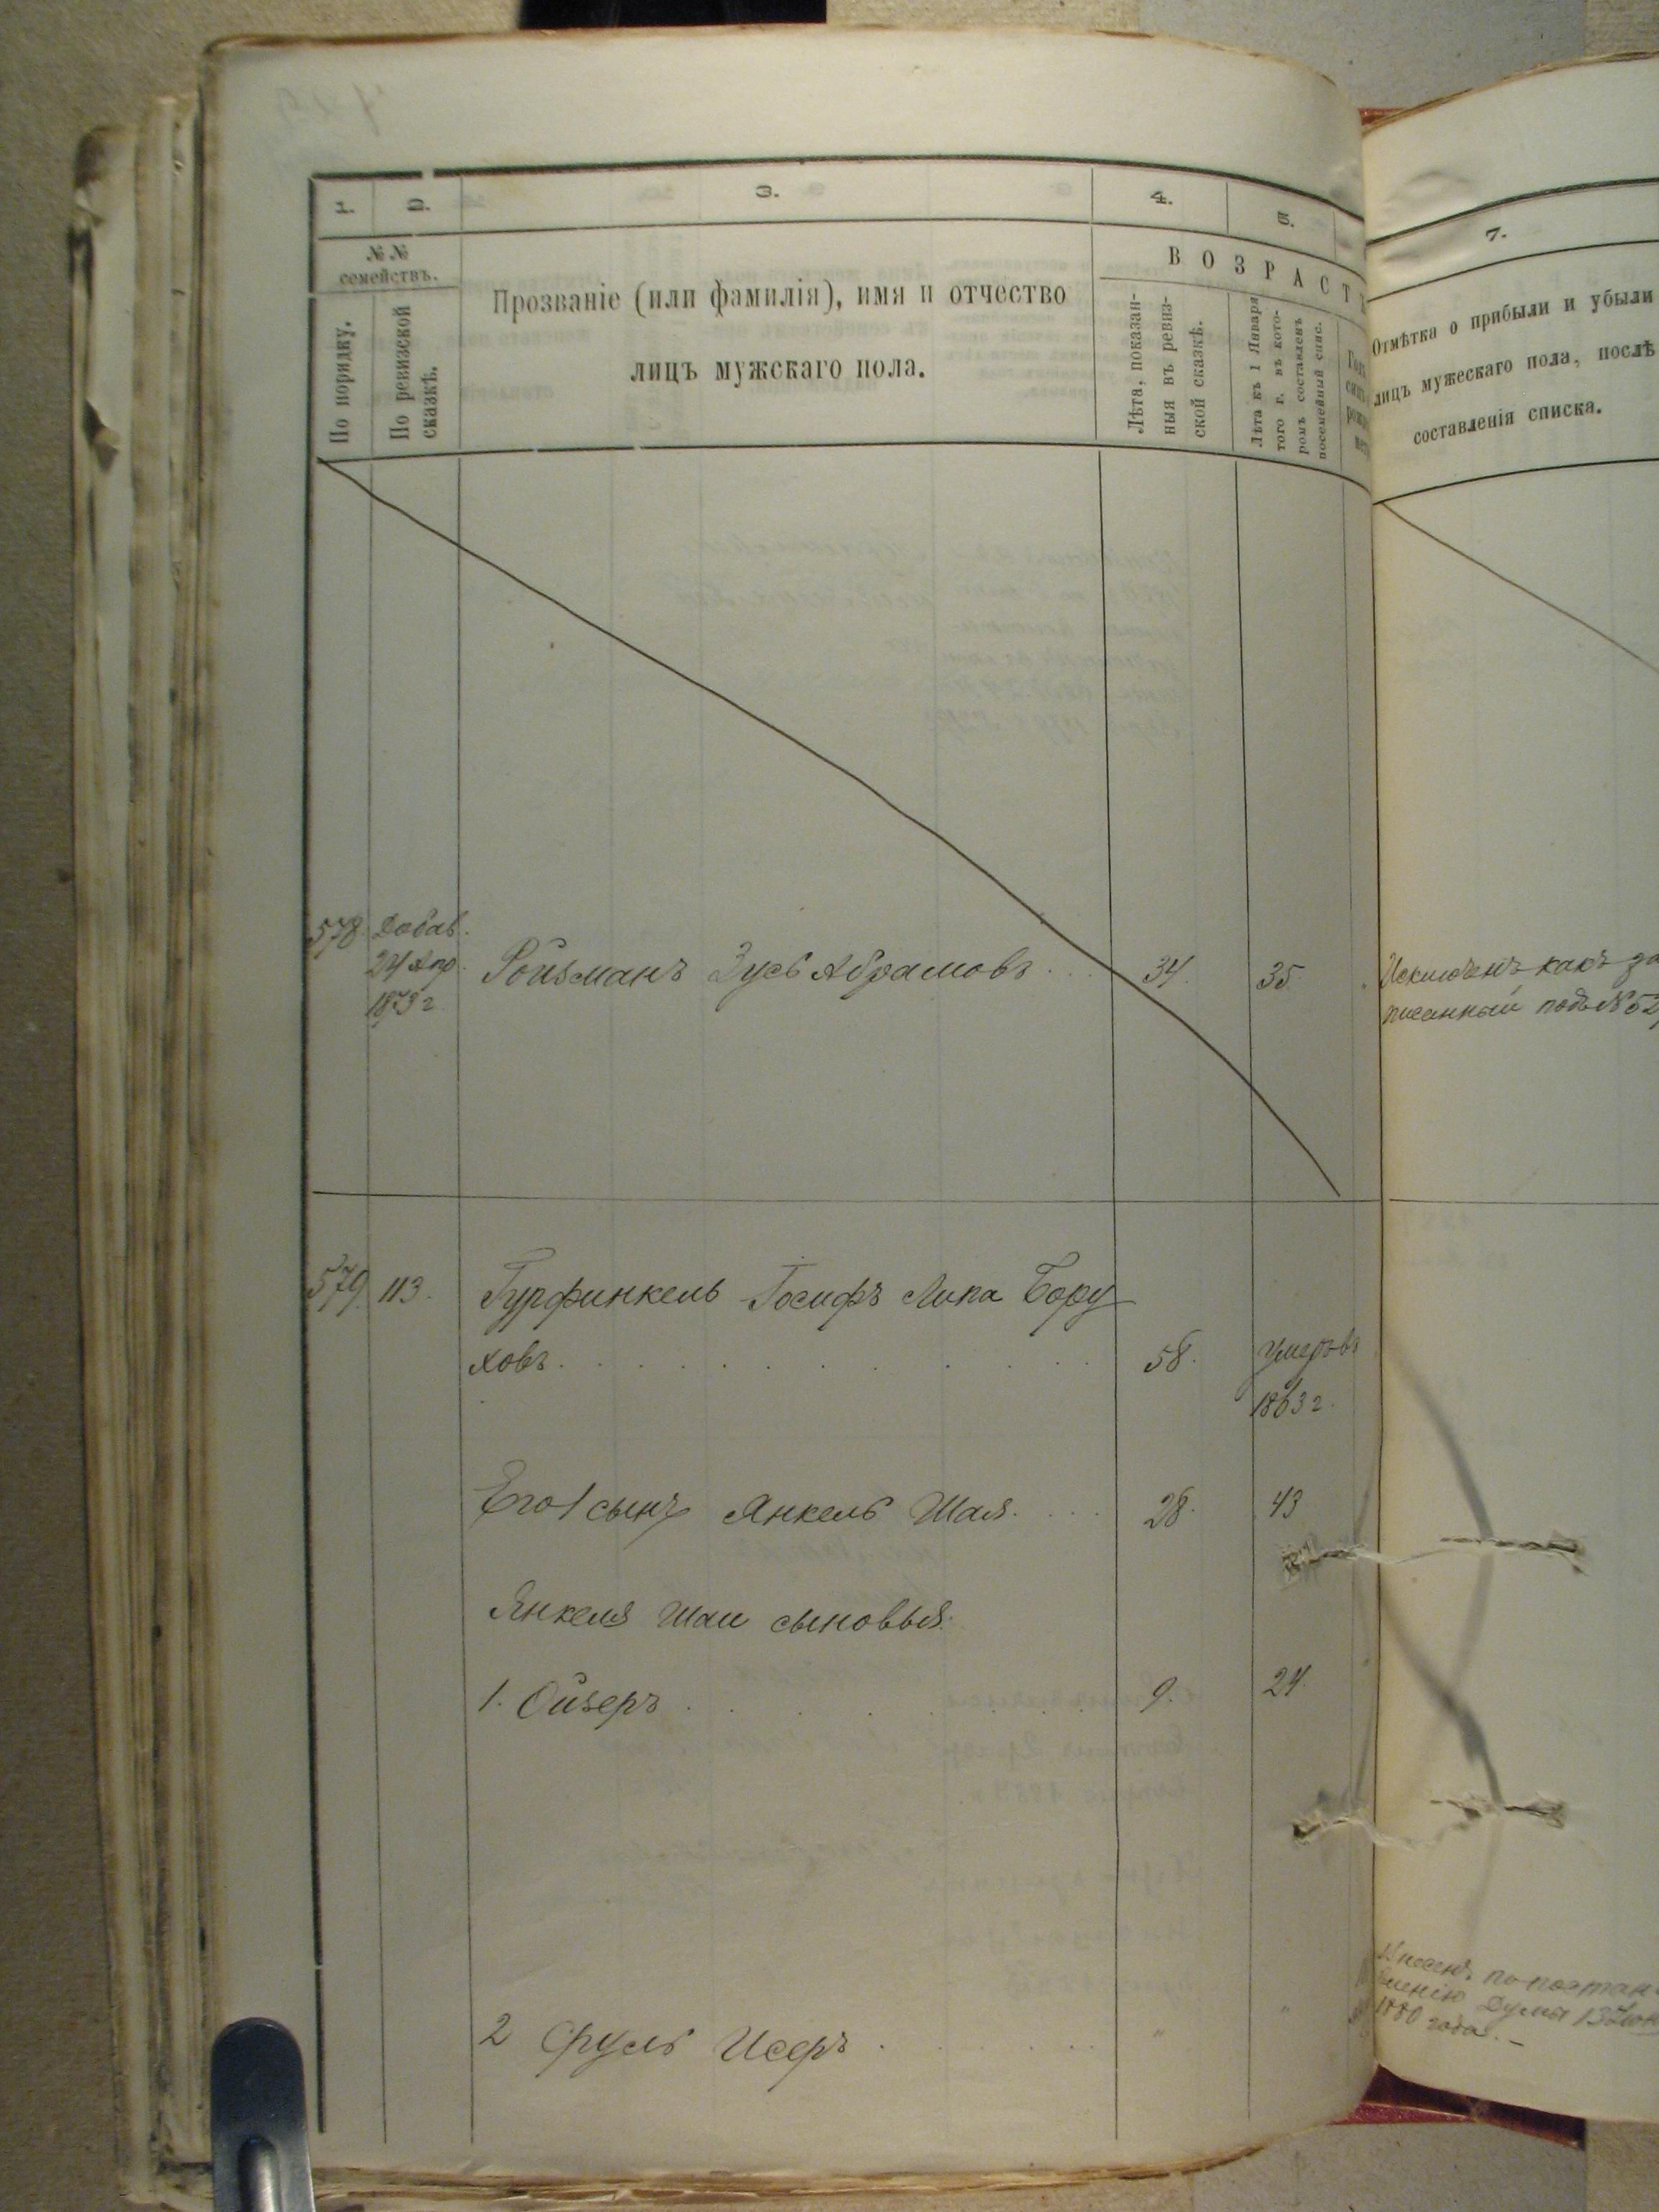 1. 2. 3. 4. 5.
№ № семействъ.
По порядку.
По ревизской сказкѣ.
Прозваніе (или фамилія), имя и отчество
лицъ мужскаго пола.
ВОЗРАСТ
Лѣта, показан-
ныя въ ревиз-
ской сказкѣ.
Лѣта къ 1 Января
того г. въ кото-
ромъ составленъ
посемейный спис.
7.
Отмѣтка о прибыли и убыли
лицъ мужескаго пола, послѣ
составленія списка.
578. Добав.
24 Апр. Ройзманъ Зусь Абрамовъ 34. 35. Исключенъ какъ за
1873 г. писанный подъ № 52
579. 113. Гурфинкель Іосифъ Липа Бору
ховъ 58. умеръ въ
1863 г.
Его 1 сынъ Янкель Шая 28. 43
Янкеля Шаи сыновья:
1. Ойзеръ 9. 24.
2 Сруль Исеръ " "
по постан
Думы 13
1880 года. –